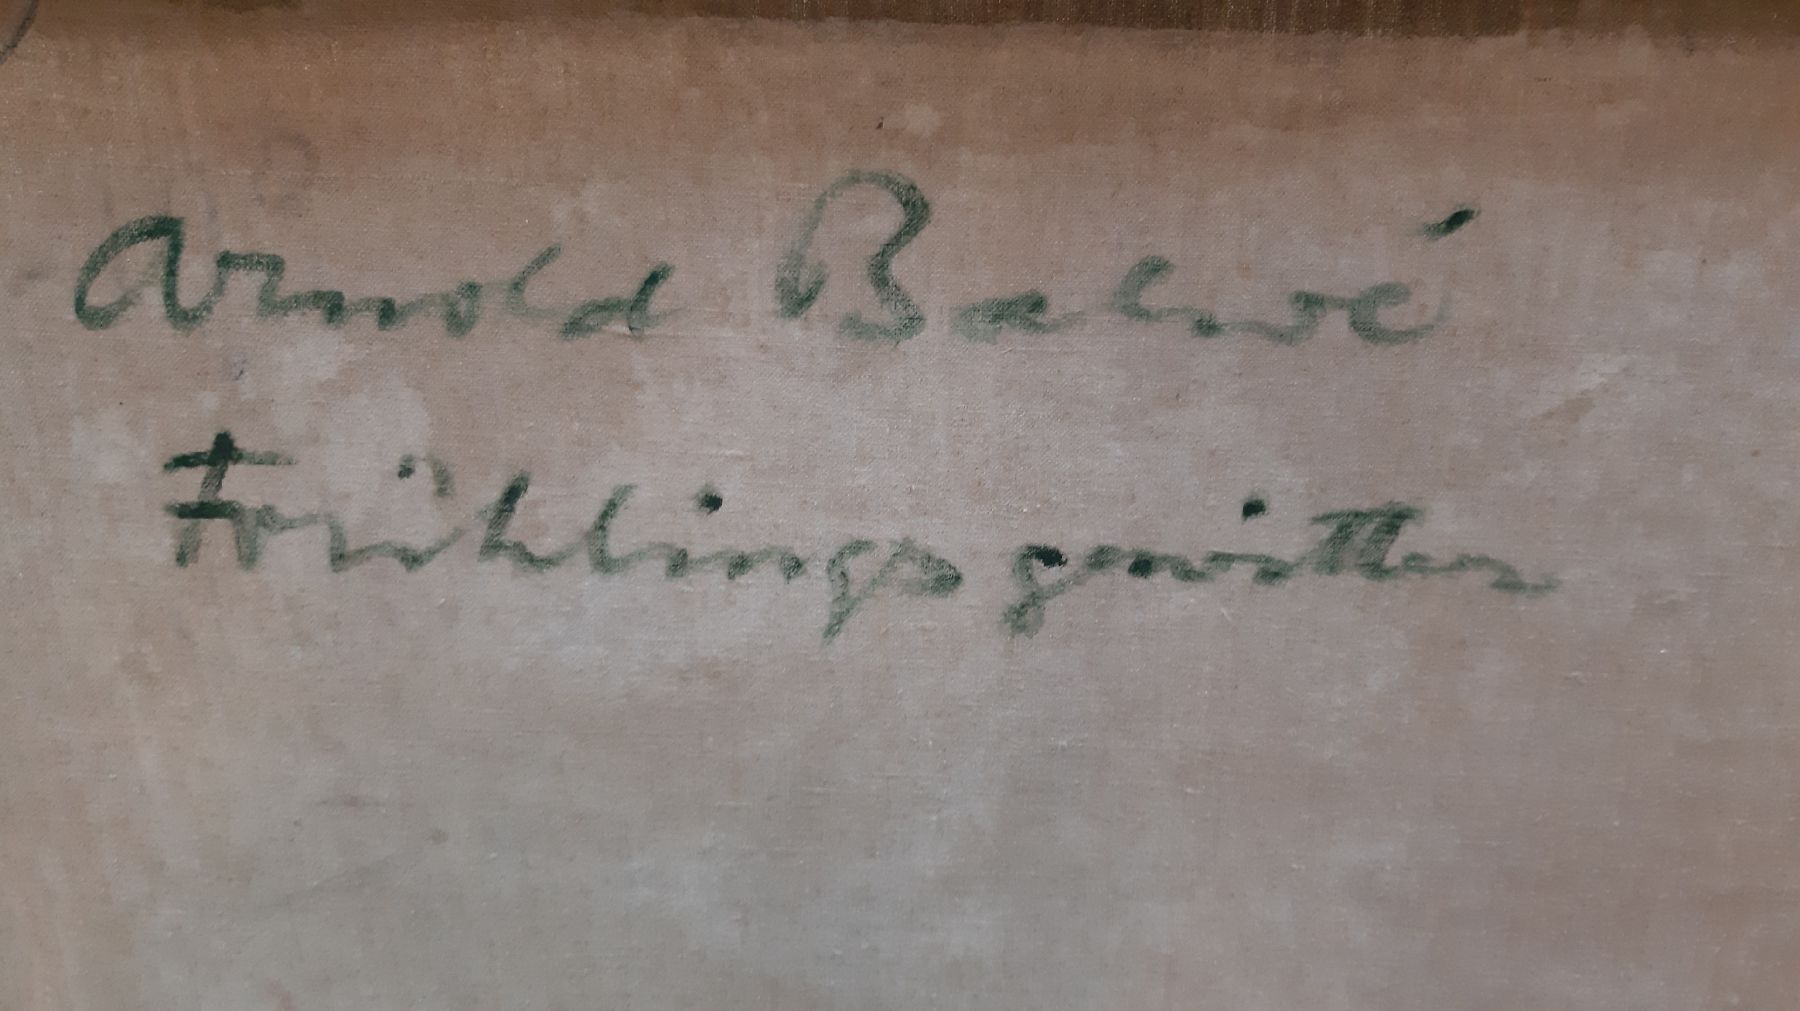 Arnold Balwé
Frühlingsgewitter